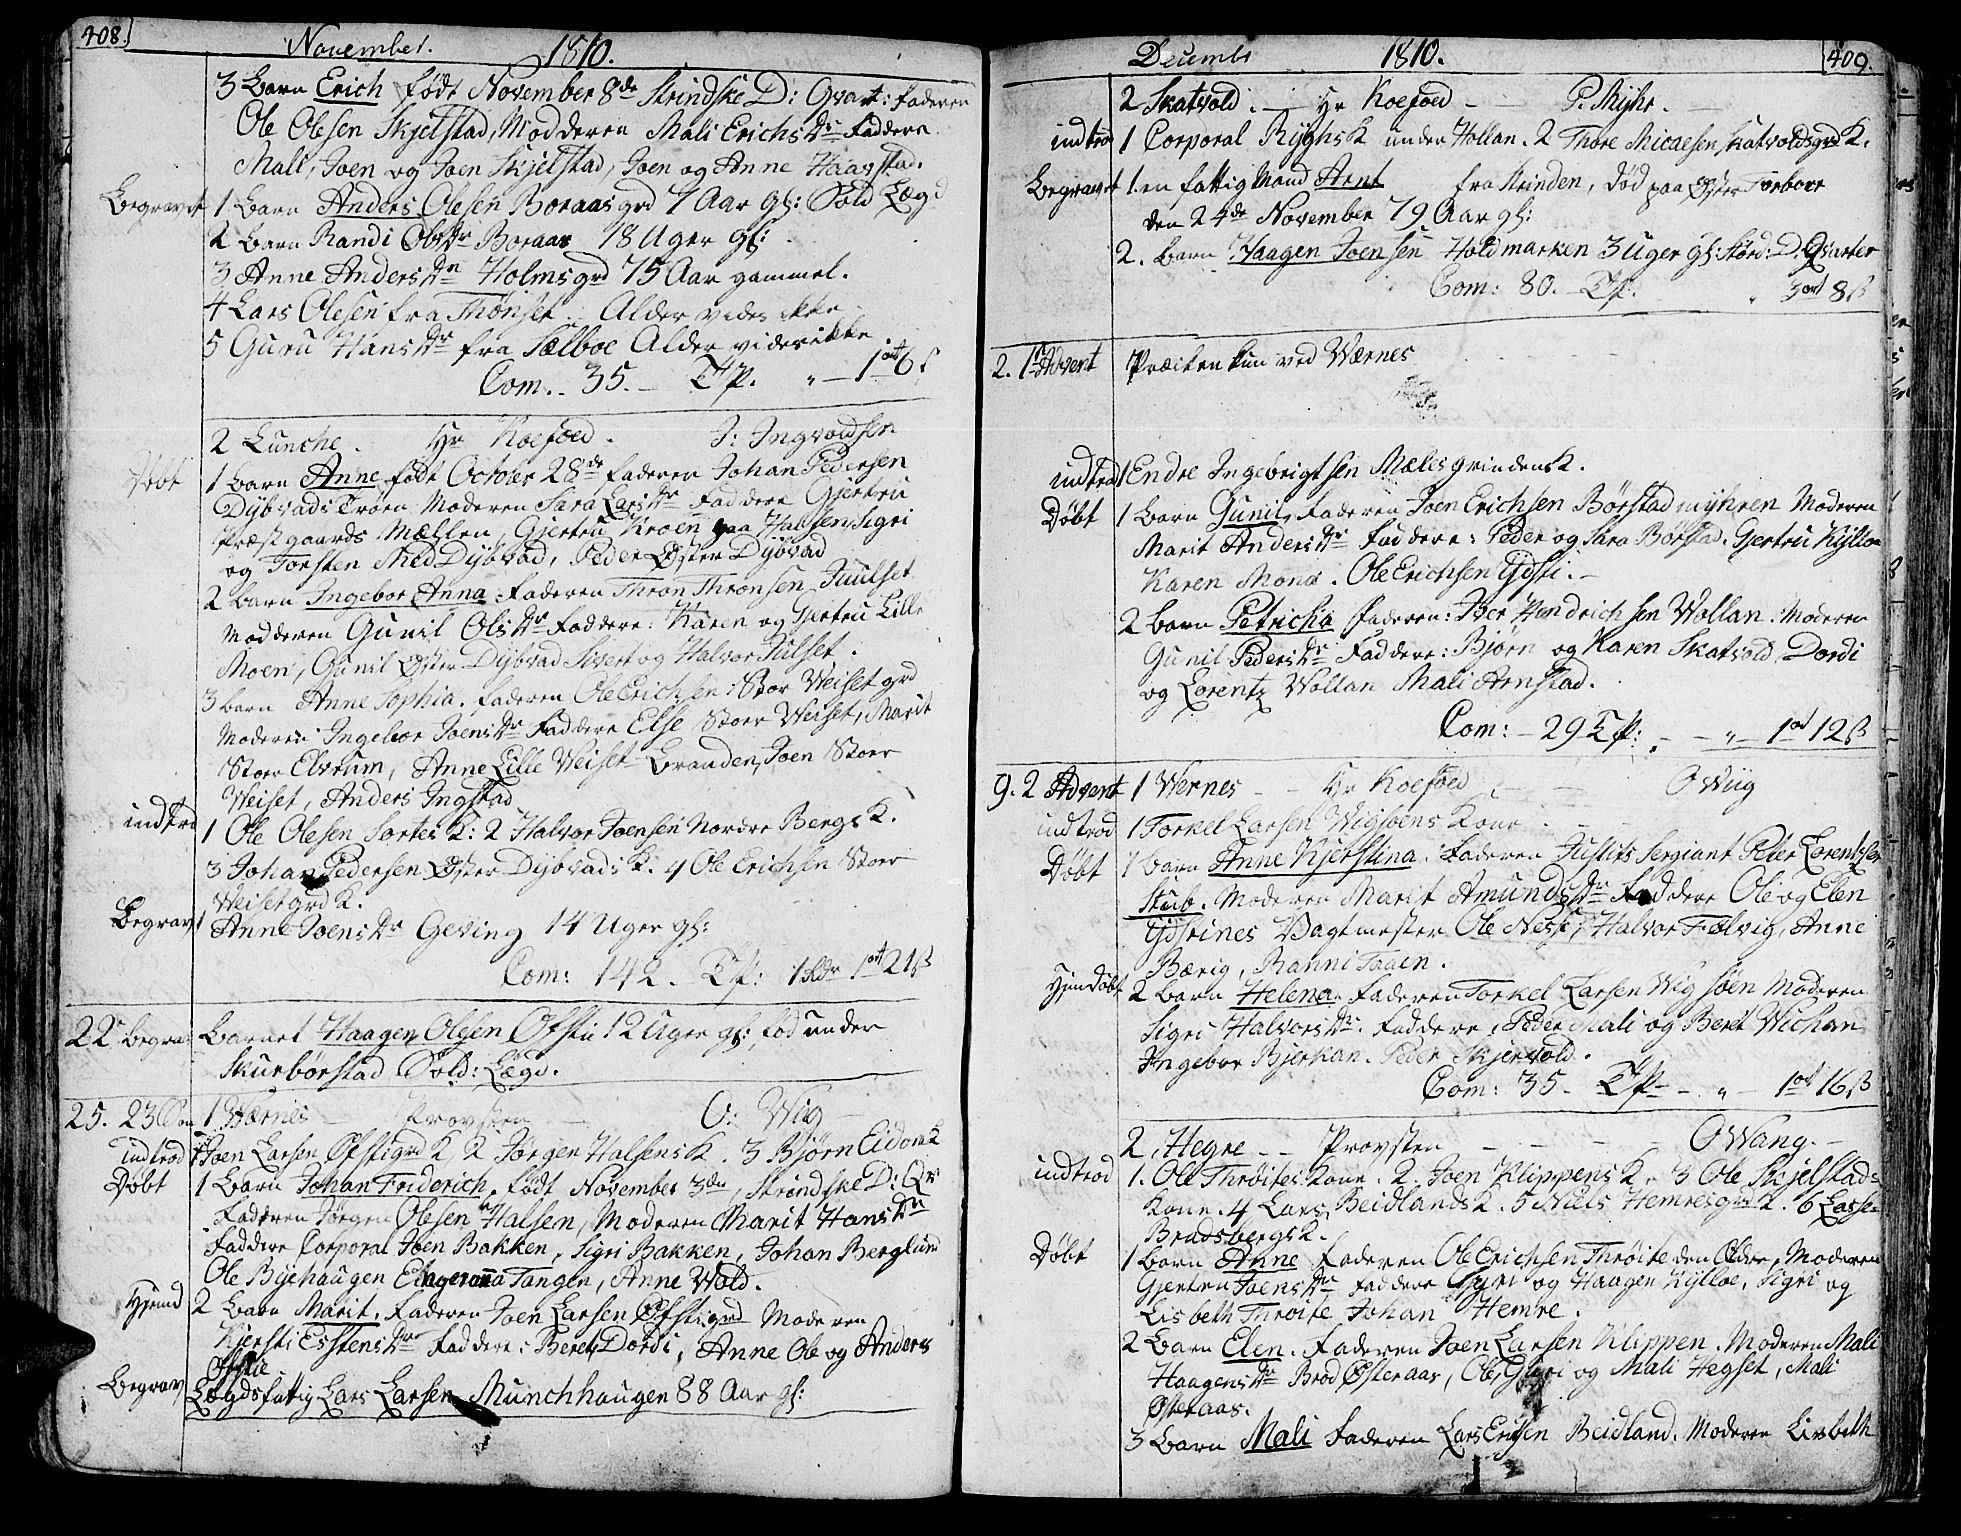 408.
November. 1810.
3 Barn Erich født November 8de Strindske D: Qvart: faderen
Ole Olesen Skjelstad, Modderen Mali Erichs Dr Faddere
Mali, Joen og Joen Skjelstad, Joen og Anne Haavstad.
Begravet 1. Barn Anders Olesen Boraasgrd 7 Aar gl: Sold Lægd
2 Barn Randi Ols Dr Boraas 18 Uger gl:
3 Anne Anders Dr Holmsgrd 75 Aar gammel.
4 Lars Olesen fra Thønset. Alder vides ikke
5 Guru Hans Dr fra Sælboe Alder vides ikke.
Com.. 35. — TP. „ — 1 ort 6 ß
2 Lunche. Hr Koefoed. J: Ingvoldsen.
Døbt 1 Barn Anne født October 28de faderen Johan Pedersen
Dybvads Trøen Moderen Sara Lars Dr Faddere Gjertru
Præstgaards Mællen, Gjertru Kroen paa Halsen, Sigri
og Torsten Med Dybvad, Peder Øster Dybvad
2 Barn Ingebor Anna. Faderen Thron Thronsen Juulset
Modderen Gunil Ols Dr Faddere: Karen og Gjertru Lille
Moen, Gunil Øster Dybvad Sivert og Halvor Julset.
3 Barn Anne Sophia. Faderen Ole Erichsen Stor Weiset grd
Moderen Ingebor Joens Dr Faddere Else Stoer Weiset, Marit
Stoer Elvrum, Anne Lille Weiset Branden, Joen Stoer
Weiset, Anders Ingstad
indtrd 1 Ole Olesen Sortes K: 2 Halvor Joensen Nordre Bergs K.
3 Johan Pedersen Øster Dybvads K. 4 Ole Erichsen Stoer
Weisetgrd K.
Begrav 1 Anne Joens Dr Geving 14 Uger gl:
Com: 142. — TP: 1 Rdr 1 ort 21 ß
22 Begrav Barnet Haagen Olesen Ofsti 12 Uger gl: fød under
Skurbørstad Sold: Lægd.
25. 23 Son 1 Wærnes — Provsten — O: Wiig
indtrod 1 Joen Larsen Ofstigrd K, 2 Jørgen Halsens K. 3 Bjørn Eidom K
Døbt 1 Barn Johan Friderich, født November 3de, Strindske D: Qr
Faderen Jørgen Olesen Halsen, Moderen Marit Hans Dr
Faddere Corporal Joen Bakken, Sigri Bakken, Johan Berglund
Ole Byehaugen Tangen, Anne Wold.
Hjemd 2 Barn Marit, Faderen Joen Larsen Ofstigrd Moderen
Kjersti Estens Dr Faddere: Beret, Dordi, Anne Ole og Anders
Ofstie
Begrav Lægdsfattig Lars Larsen Munchhaugen 88 Aar gl:
Decembr 1810. 409.
2 Skatvold. — Hr Koefoed — — P. Myhr. —
indtrod 1 Corporal Ryghs K under Hollan. 2 Thore Micaelsen Skatvoldsgrd K.
Begravet 1. en fattig Mand Arnt fra Strinden, død paa Øster Forbore
den 24de November 79 Aar gl:
2. Barn Haagen Joensen Holdmarken 3 Uger gl: Størd: D: Qvarter
Com: 80. — TP. „ 3 ort 8 ß
2. 1 Advent Præken kun ved Wærnes
indtrod 1 Endre Ingebrigtsen Mælesgrinden K.
Døbt 1 Barn Gunil, Faderen Joen Erichsen Børstad myhren Moderen
Marit Anders Dr Faddere: Peder og Sara Børstad. Gjertru Kylloe
Karen Mona. Ole Erichsen Ydsti. —
2 Barn Petricha Faderen: Iver Hendrichsen Wollan. Moderen
Gunil Peders Dr Faddere: Bjørn og Karen Skatvold, Dordi
og Lorentz Wollan Mali Arnstad.
Com: — 29 TP: — — „ — 1 ort 12 ß
9. 2 Advent 1 Wernes — — Hr Koefoed — — O Wiig
indtrod 1 Torkel Larsen Wigsøens Kone
Døbt 1 Barn Anne Kjerstina. Faderen Justits Sergiant Peter Lorentzsen
Stub. Moderen Marit Amunds Dr Faddere Ole og Elen
Ydstines Vagtmester Ole Ness, Halvor Fælvig, Anne
Bærig, Ranni Faaen.
Hjemdøbt 2 Barn Helena. Faderen Torkel Larsen Wigsøen Moderen
Sigri Halvors Dr. Faddere, Peder Mali og Beret Wichan
Ingebor Bjerkan. Peder Skjervold.
Com: 35 — TP — „ — 1 ort 16 ß
2. Hegre — — Provsten — — — O Wang. —
indtrod 1. Ole Thrøites Kone. 2. Joen Klippens K. 3 Ole Skjelstads
Kone. 4 Lars Beidlands K. 5 Niels Hemresgrd K. 6 Lasse
Brudsbergs K.
Døbt 1 Barn Anne Faderen Ole Erichsen Thrøite den Eldre, Moderen
Gjertru Joens Dr Faddere Guri og Haagen Kylloe, Sigri og
Lisbeth Thrøite Johan Hemre.
2 Barn Elen. Faderen Joen Larsen Klippen. Moderen Mali
Haagens Dr Brod Østeraas, Ole, Guri og Mali Hegset, Mali
Østeraas.
3 Barn Mali Faderen Lars Erichsen Beidland. Moderen Lisbeth